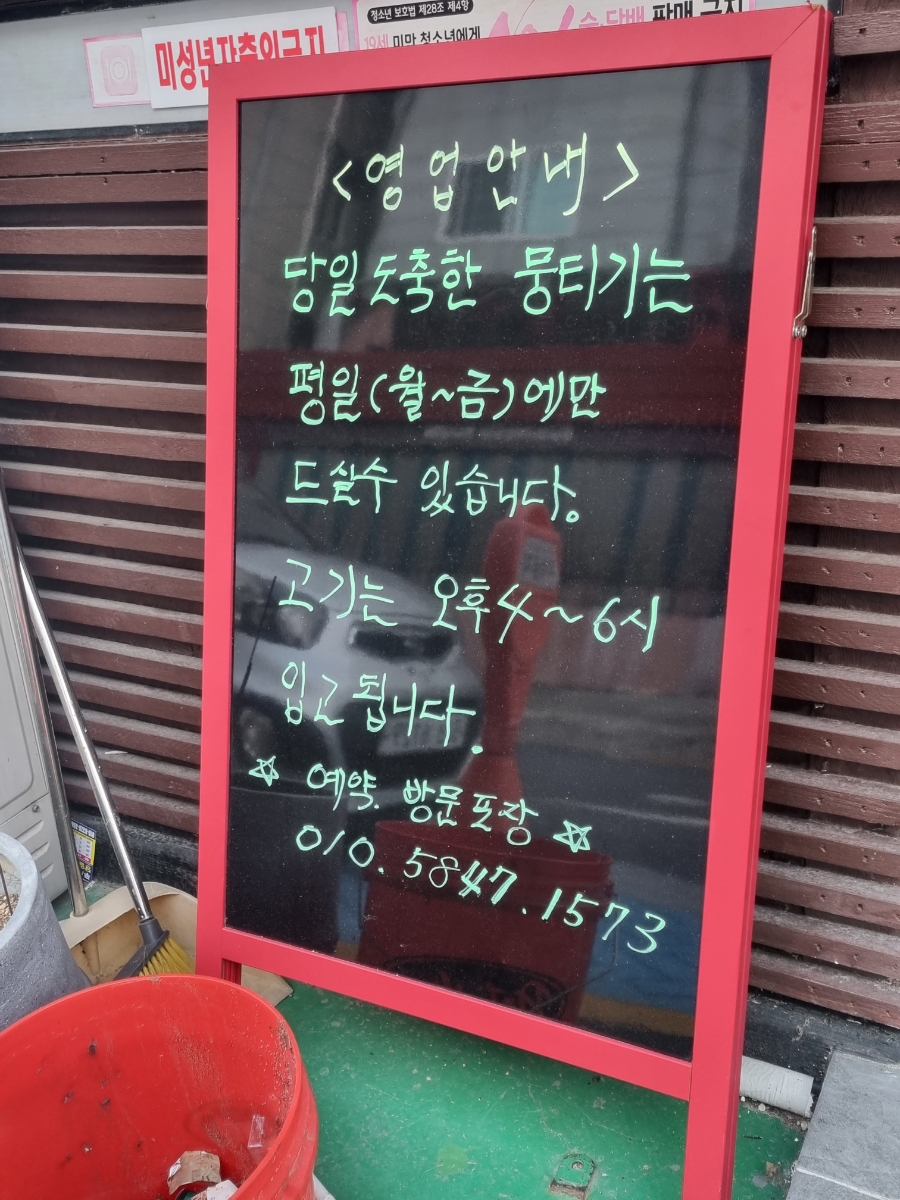 청소년 보호법 제28조 제4항
미성년자출입금지
19세 미만 청소년에게 술·담배 판매 금지
<영업안내>
당일도축한 뭉티기는
평일(월~금)에만
드실수 있습니다.
고기는 오후4~6시
입고됩니다.
☆ 예약. 방문포장 ☆
010.5847.1573